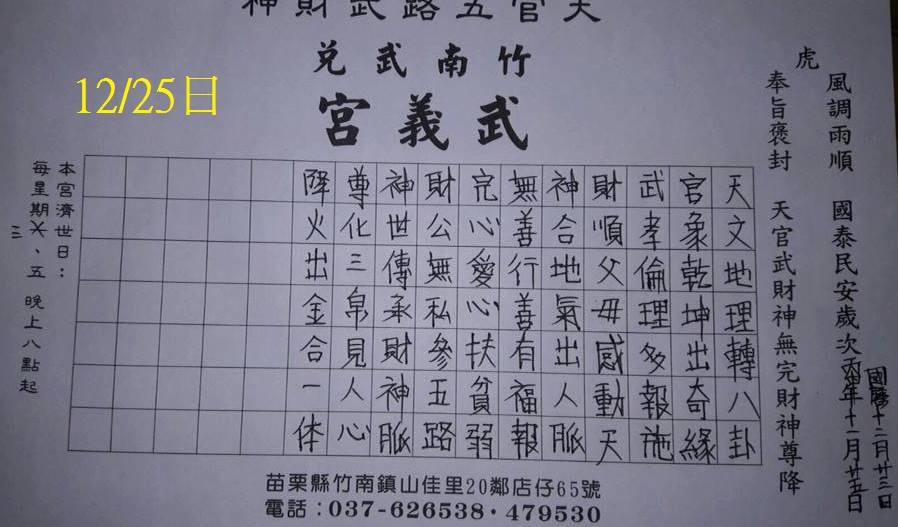 天官五路武財神
竹南武兌
武義宮
12/25日
風調雨順 國泰民安歲次丙申年十一月廿五日
國曆十二月廿三日
虎
奉旨褒封 天官武財神無完財神尊降
天文地理轉八卦
宮象乾坤出奇緣
武孝倫理多報施
財順父母感動天
神合地氣出人脈
無善行善有福報
完心愛心扶貧弱
財公無私參五路
神世傳承財神脈
尊化三帛見人心
降火出金合一体
本宮濟世日：
每星期三、五 晚上八點起
苗栗縣竹南鎮山佳里20鄰店仔65號
電話：037-626538・479530